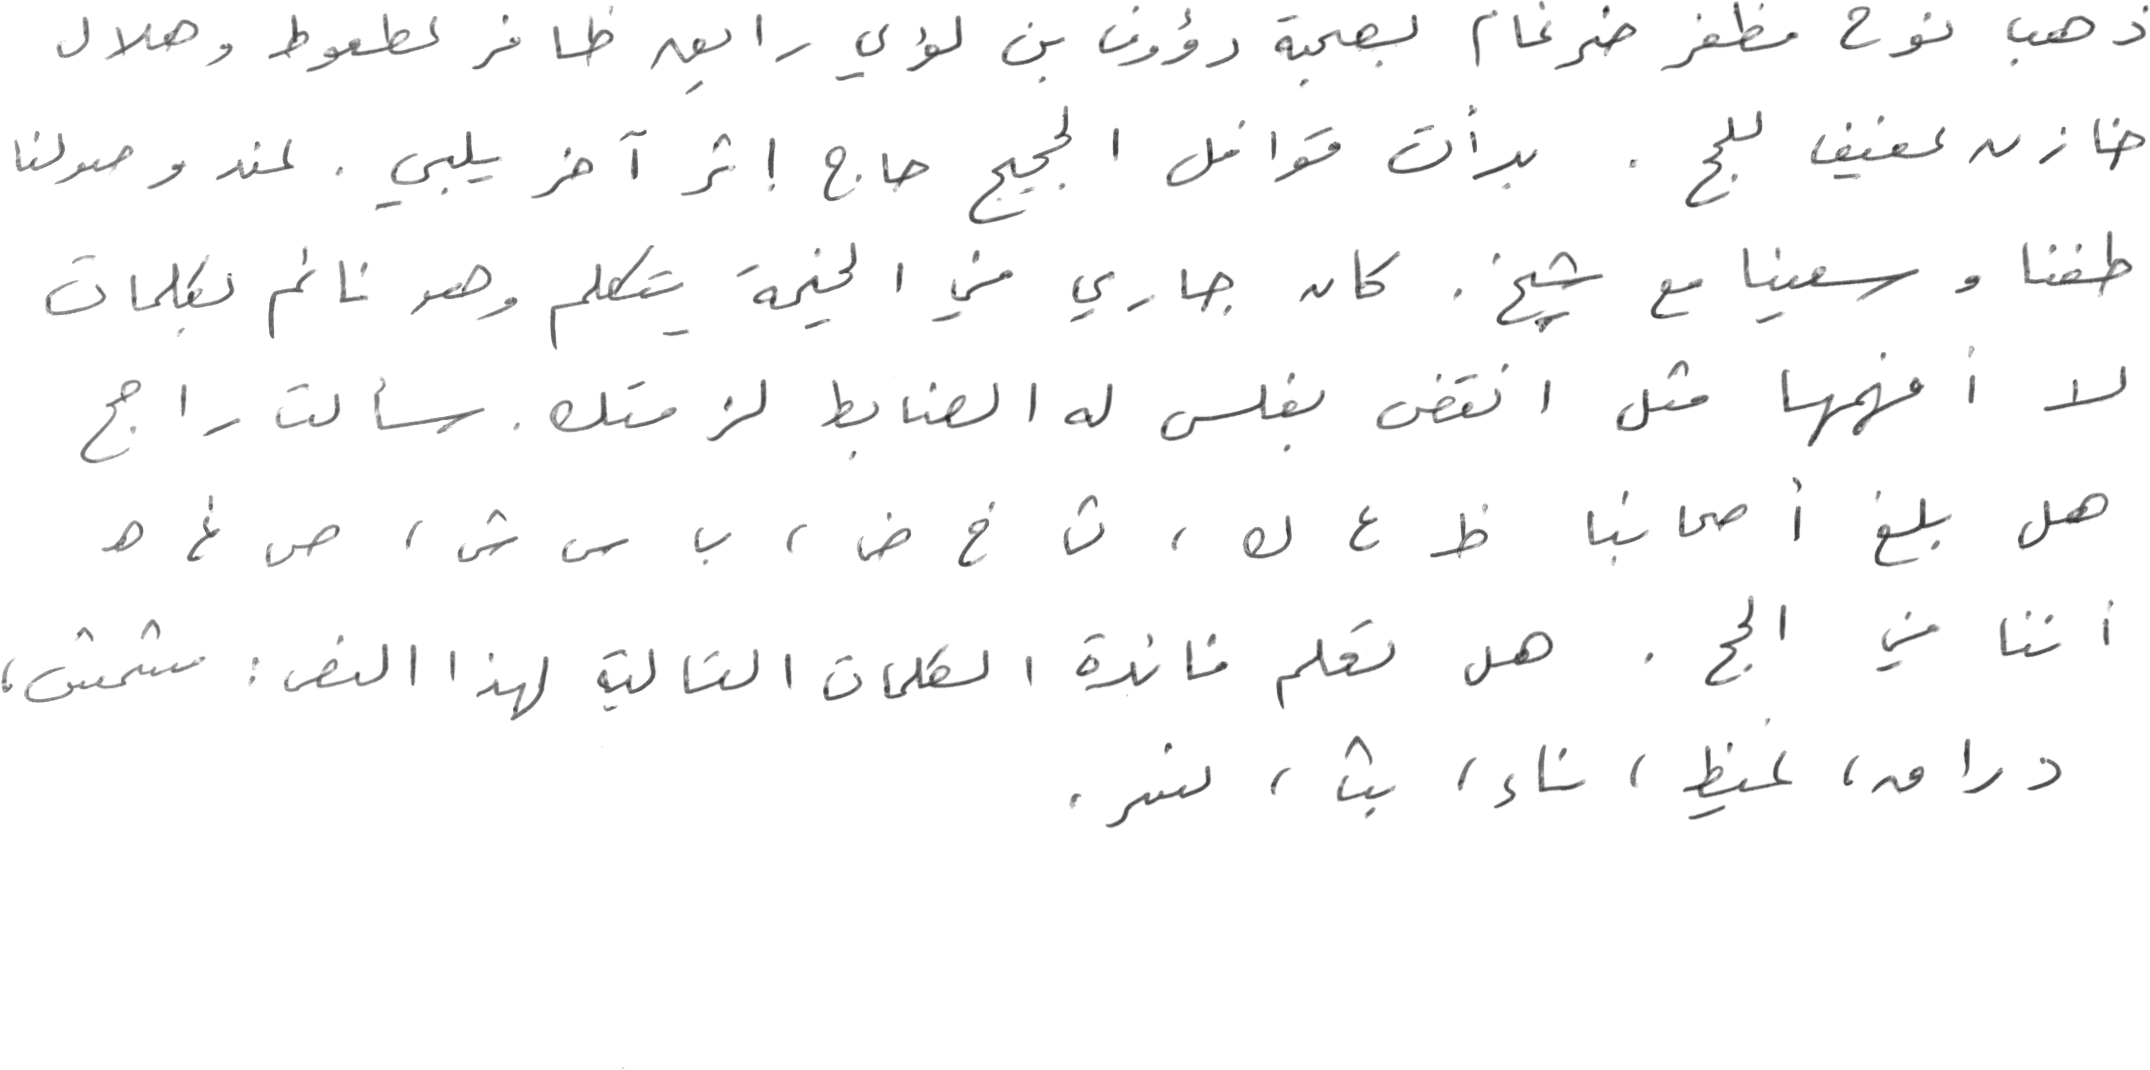 ذهب نوح مظفر ضرغام بصحبة رؤوف بن لؤي رايق ظافر عطعوط وهلال
خازن عفيف للحج . بدأت قوافل الحجيج حاج إثر آخر يلبي . عند وصولنا
طفنا وسعينا مع شيخ . كان جاري في الخيمة يتكلم وهو نائم بكلمات
لا أفهمها مثل انقض بغلس له الضابط لزمتك . سألت راجح
هل بلغ أصحابنا ظ ع ك ، ث خ ض ، ب س ش ، ص غ ه
أننا في الحج . هل تعلم فائدة الكلمات التالية لهذا النص : مشمش ،
دراق ، غيظ ، شاء ، بث ، نسر .